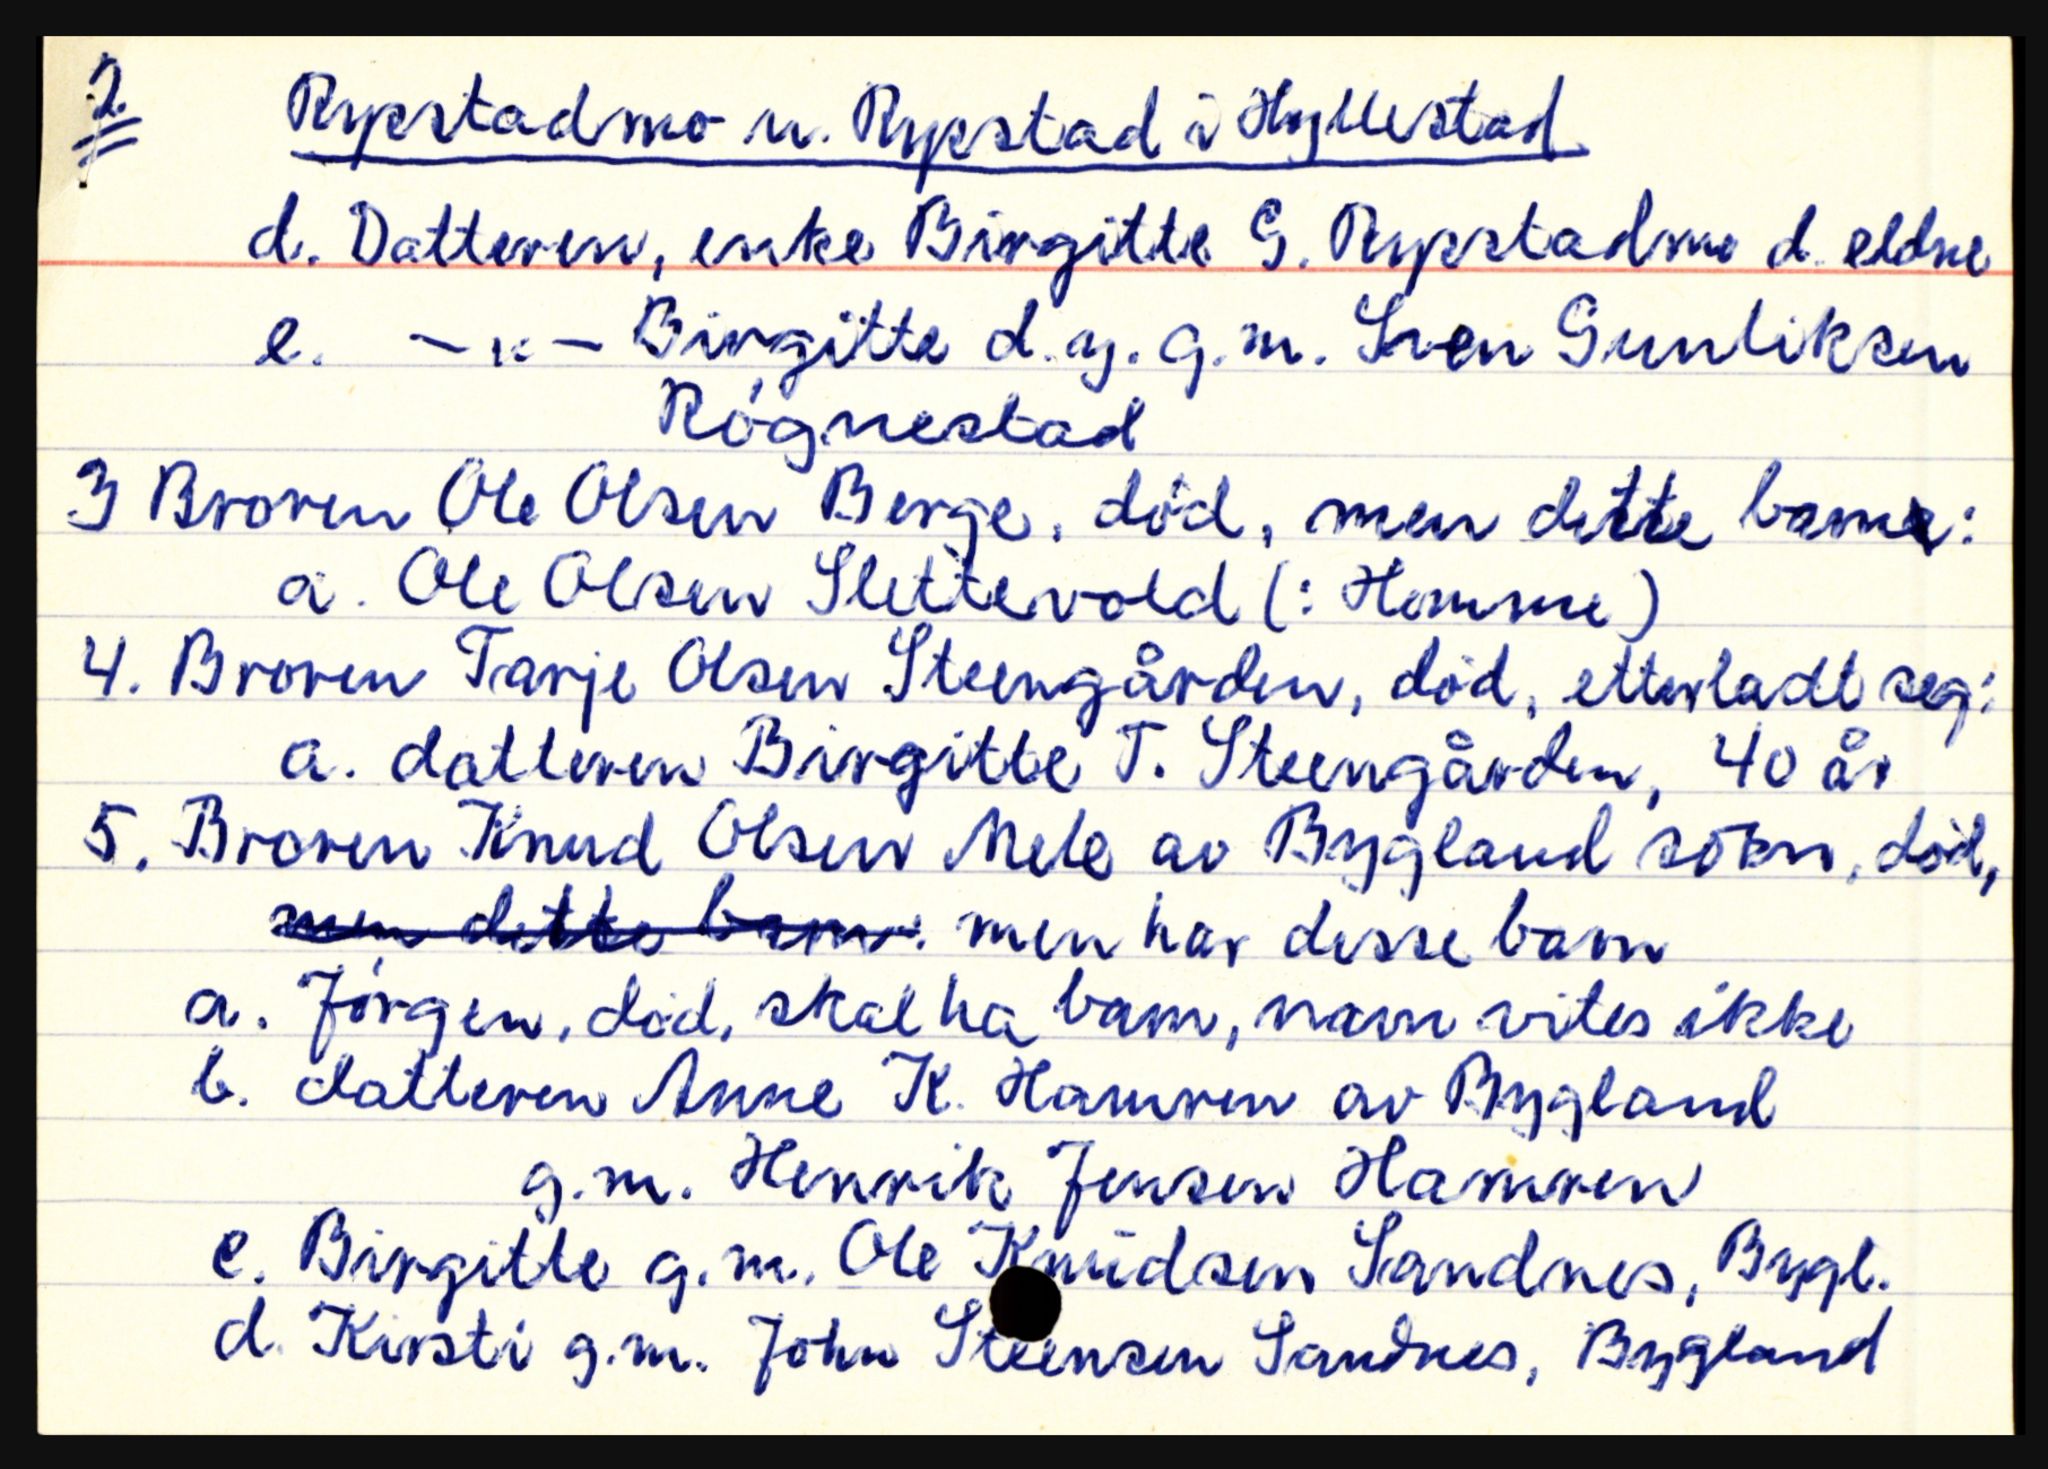 2.
Rypstadmo u. Rypstad i Hyllestad
d. Datteren, enke Birgitte G. Rypstadmo d. eldre
e. -"- Birgitte d.y. g.m. Sven Gunliksen
Røgnestad
3 Broren Ole Olsen Berge, død, men dette barne:
a. Ole Olsen Slettevold (: Homme)
4. Broren Tarje Olsen Steengården, død, etterladt seg:
a. datteren Birgitte T. Steengården, 40 år
5. Broren Knud Olsen Mele av Bygland sokn, død,
men dette barn: men har disse barn
a. Jørgen, død, skal ha barn, navn vites ikke
b. datteren Anne K. Hamren av Bygland
g.m. Henrik Jensen Hamren
c. Birgitte g.m. Ole Knudsen Sandnes, Bygl.
d. Kirsti g.m. John Steensen Sandnes, Bygland